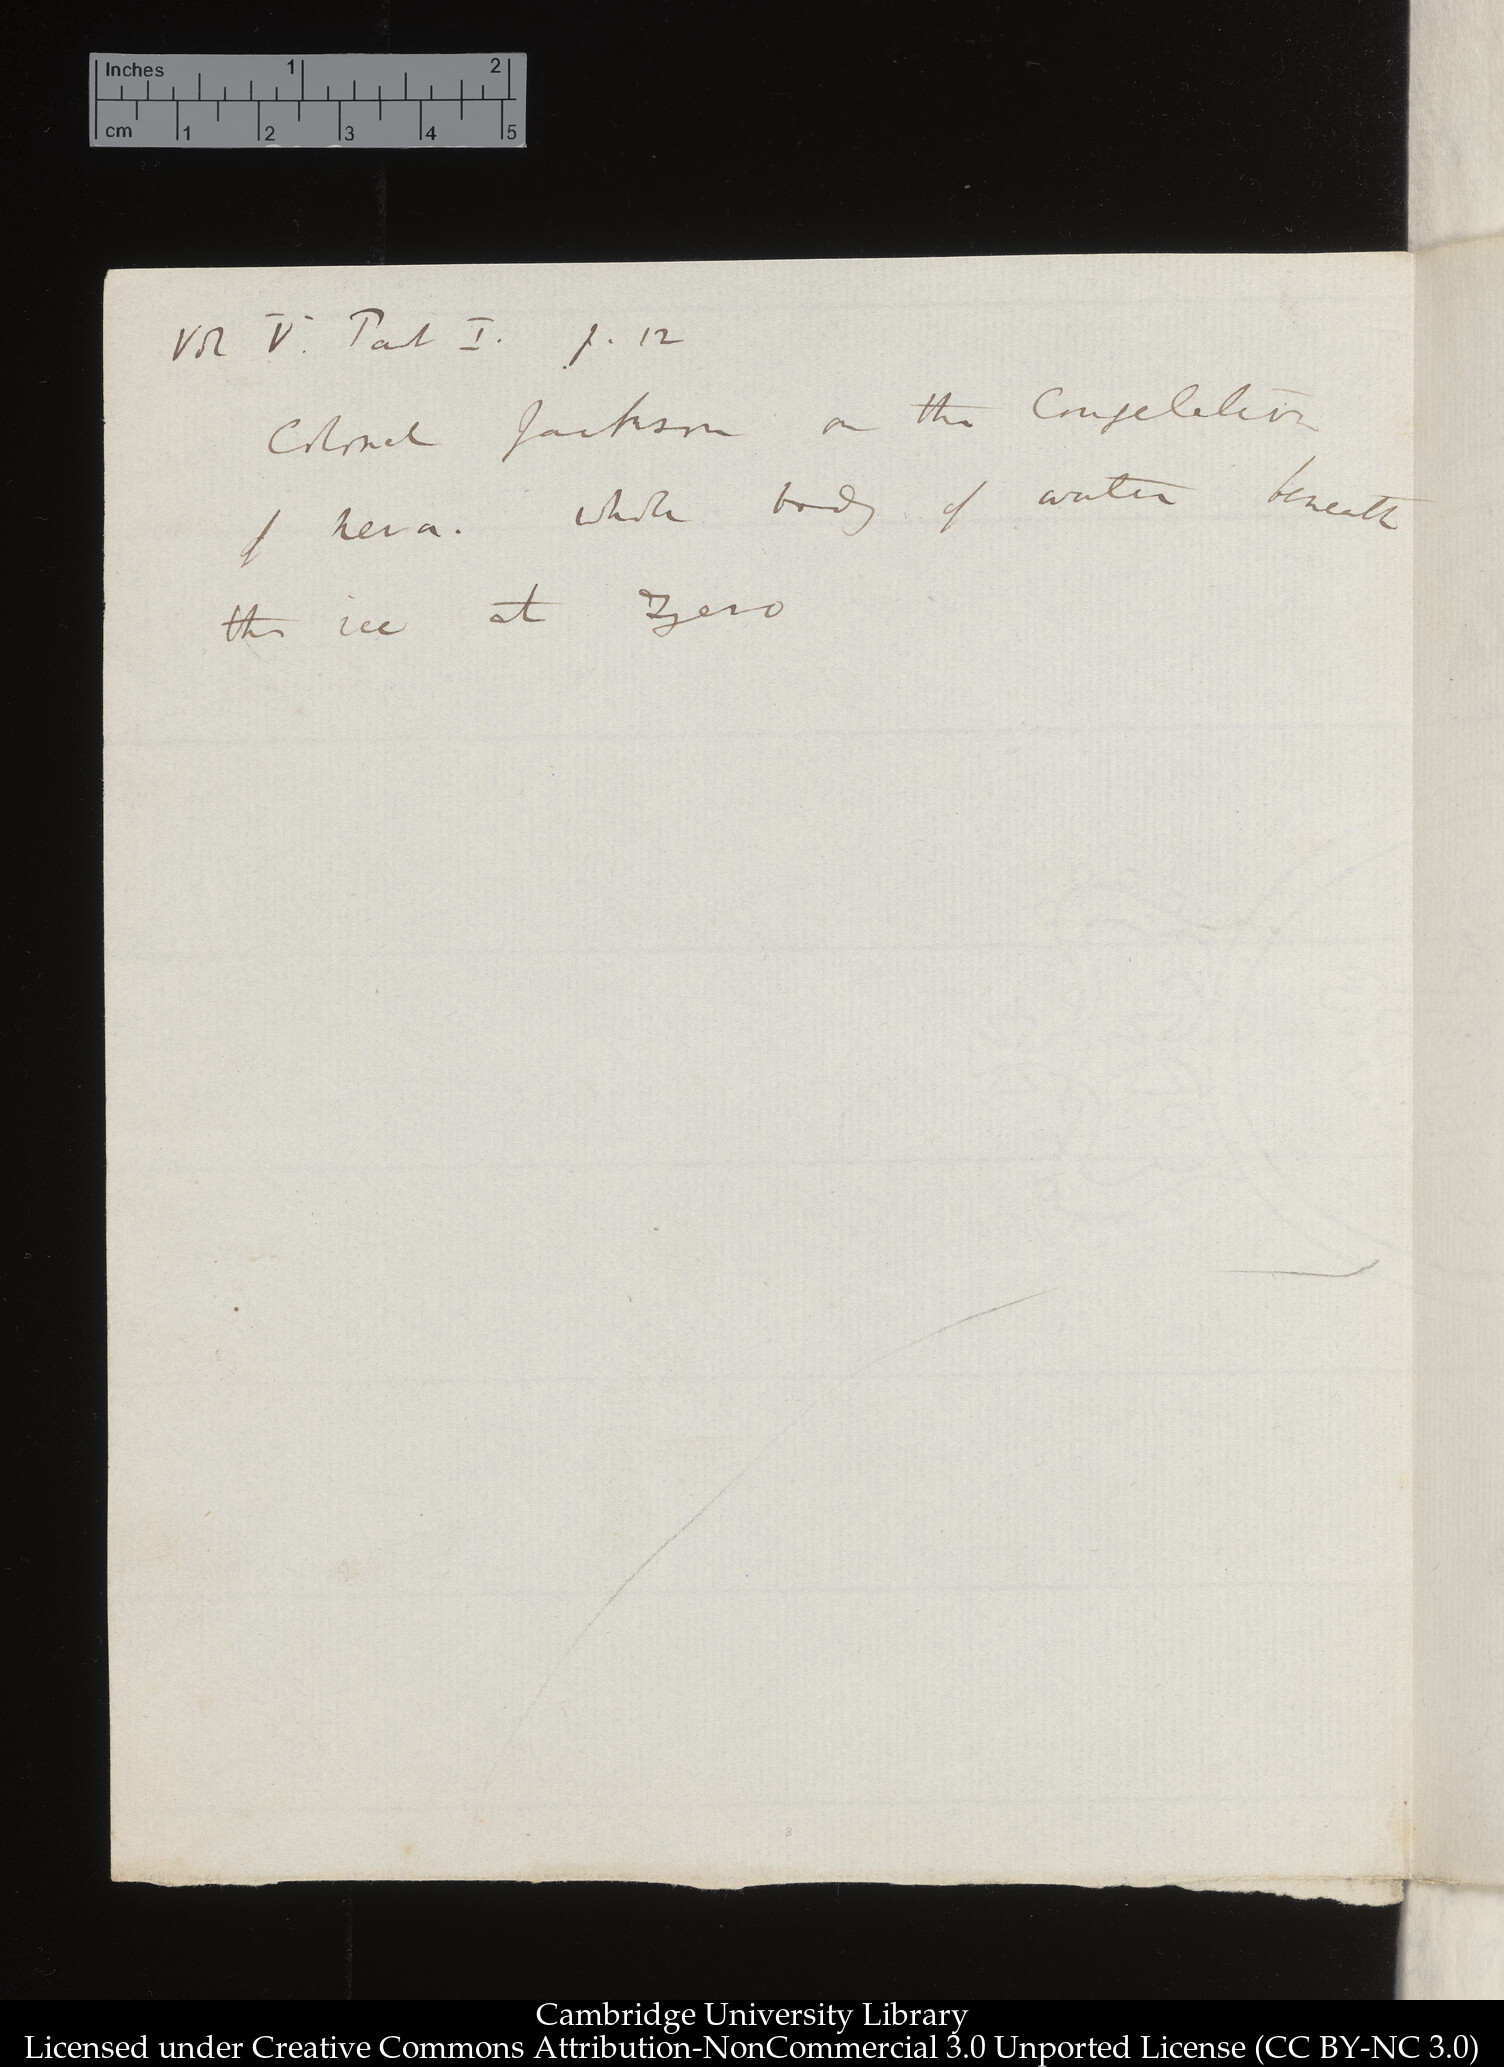 Inches 1 2
cm 1 2 3 4 5
Vol V. Part I. p. 12
Colonel Jackson on the Congelation
of Neva. whole body of water beneath
the ice at Zero
8
Cambridge University Library
Licensed under Creative Commons Attribution-NonCommercial 3.0 Unported License (CC BY-NC 3.0)